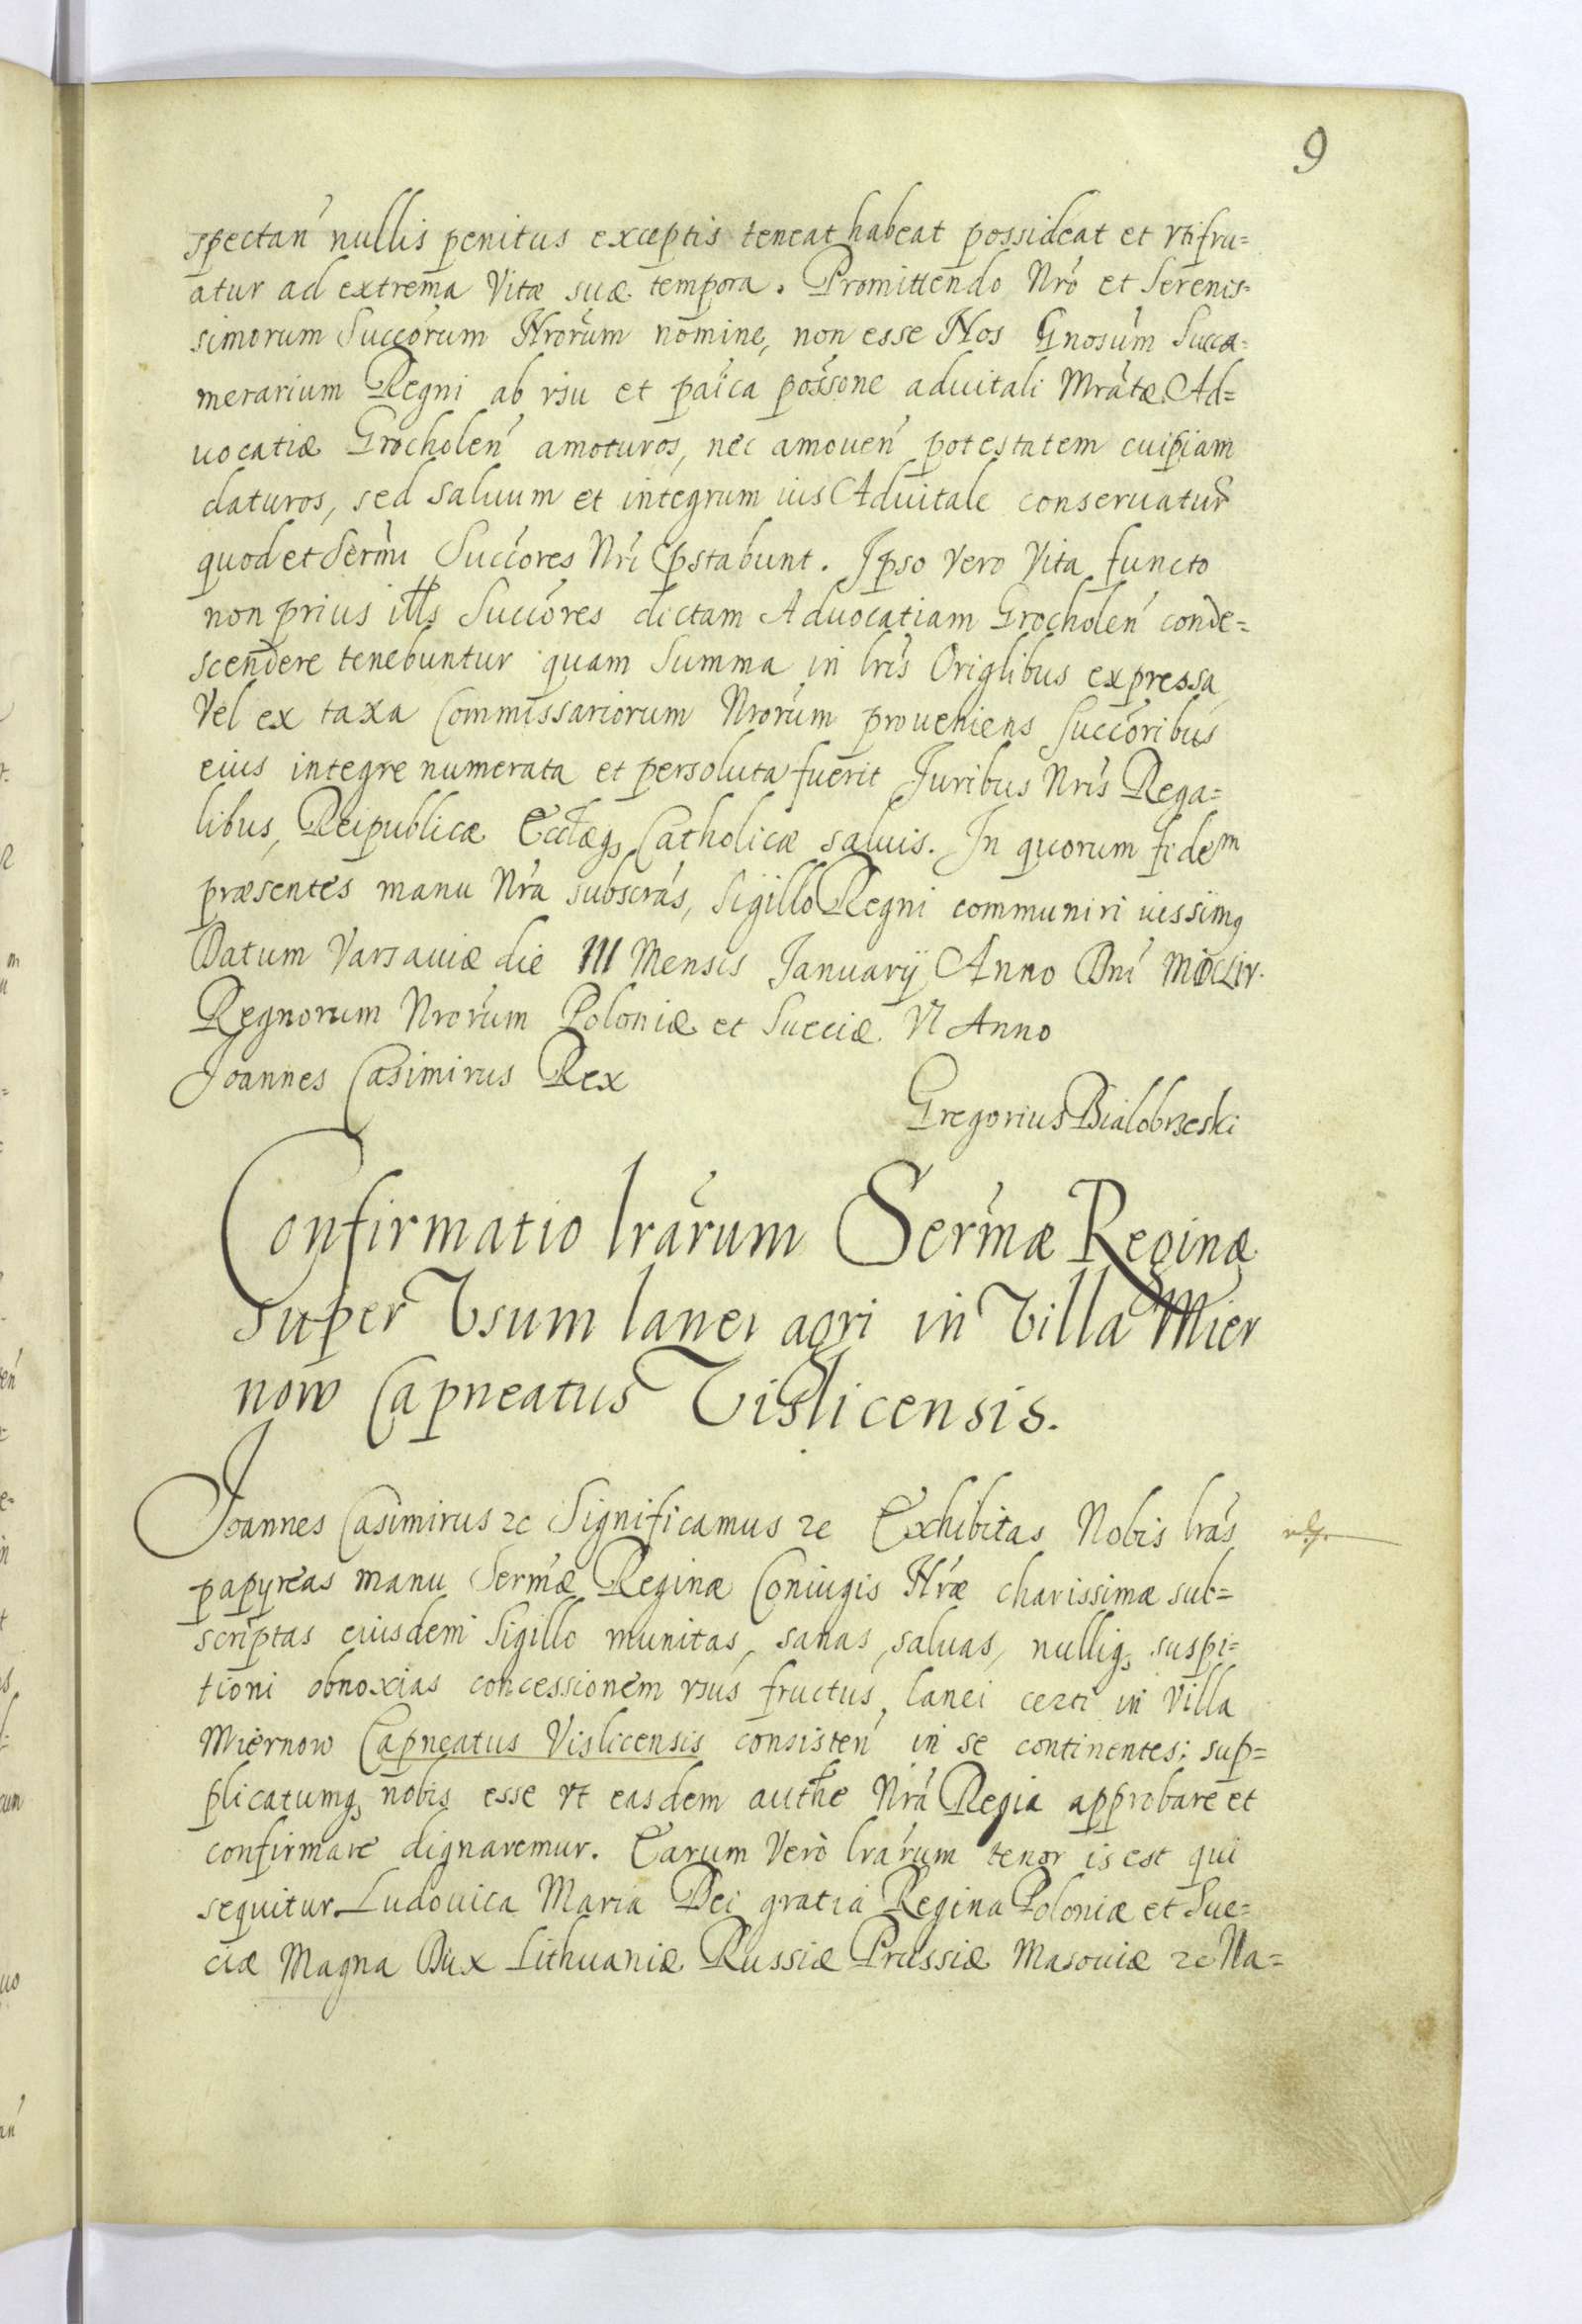 9
spectań nullis penitus exceptis teneat habeat possideat et vtifru=
atur ad extrema Vitæ suæ tempora. Promittendo Nrô et Serenis=
simorum Succórum Nrórum nomine, non esse Nos Gnosúm Succa=
merarium Regni ab vsu et paíca possóne aduitali Mrátæ Ad=
uocatiæ Grocholeń amoturos, nec amoueń potestatem cuipiam
daturos, sed saluum et integrum ius Aduitale conseruatur
quod et Sermí Succóres Nrí pstabunt. Ipso vero Vita functo
non prius ills Succóres dictam Aduocatiam Grocholeń conde=
scendere tenebuntur quam Summa in lrís Origlibus expressa
Vel ex taxa Commissariorum Nrórum proueniens Succóribus
eius integre numerata et persoluta fuerit Juribus Nrís Rega=
libus, Reipublicæ Ecclæq, Catholicæ saluis. In quorum fidem
præsentes manu Nrá subscrás, Sigillo Regni communiri iussimq
Datum Varsauiæ die III Mensis Januarij Anno Dní MDCLIV.
Regnorum Nrórum Poloniæ et Sueciæ VI Anno
Joannes Casimirus Rex
Gregorius Bialobrzeski
Confirmatio lrárum Sermæ Reginæ
super Vsum lanei agri in Villa Mier
now Capneatus Vislicensis.
Joannes Casimirus &c Significamus &c Exhibitas Nobis lrás
papyreas manu Sermæ Reginæ Coniugis Nræ charissimæ sub=
scriptas eiusdem Sigillo munitas, sanas, saluas, nulliq, suspi=
tioni obnoxias concessionem vsús fructús, lanei certi in Villa
Miernow Capneatus Vislicensis consisteń in se continentes; sup=
plicatumq, nobis esse vt easdem authe Nrá Regia approbare et
confirmare dignaremur. Earum verò lrárum tenor is est qui
sequitur. Ludouica Maria Dei gratiá Regina Poloniæ et Sue=
ciæ Magna Dux Lithuaniæ Russiæ Prussiæ Masouiæ &c Na=